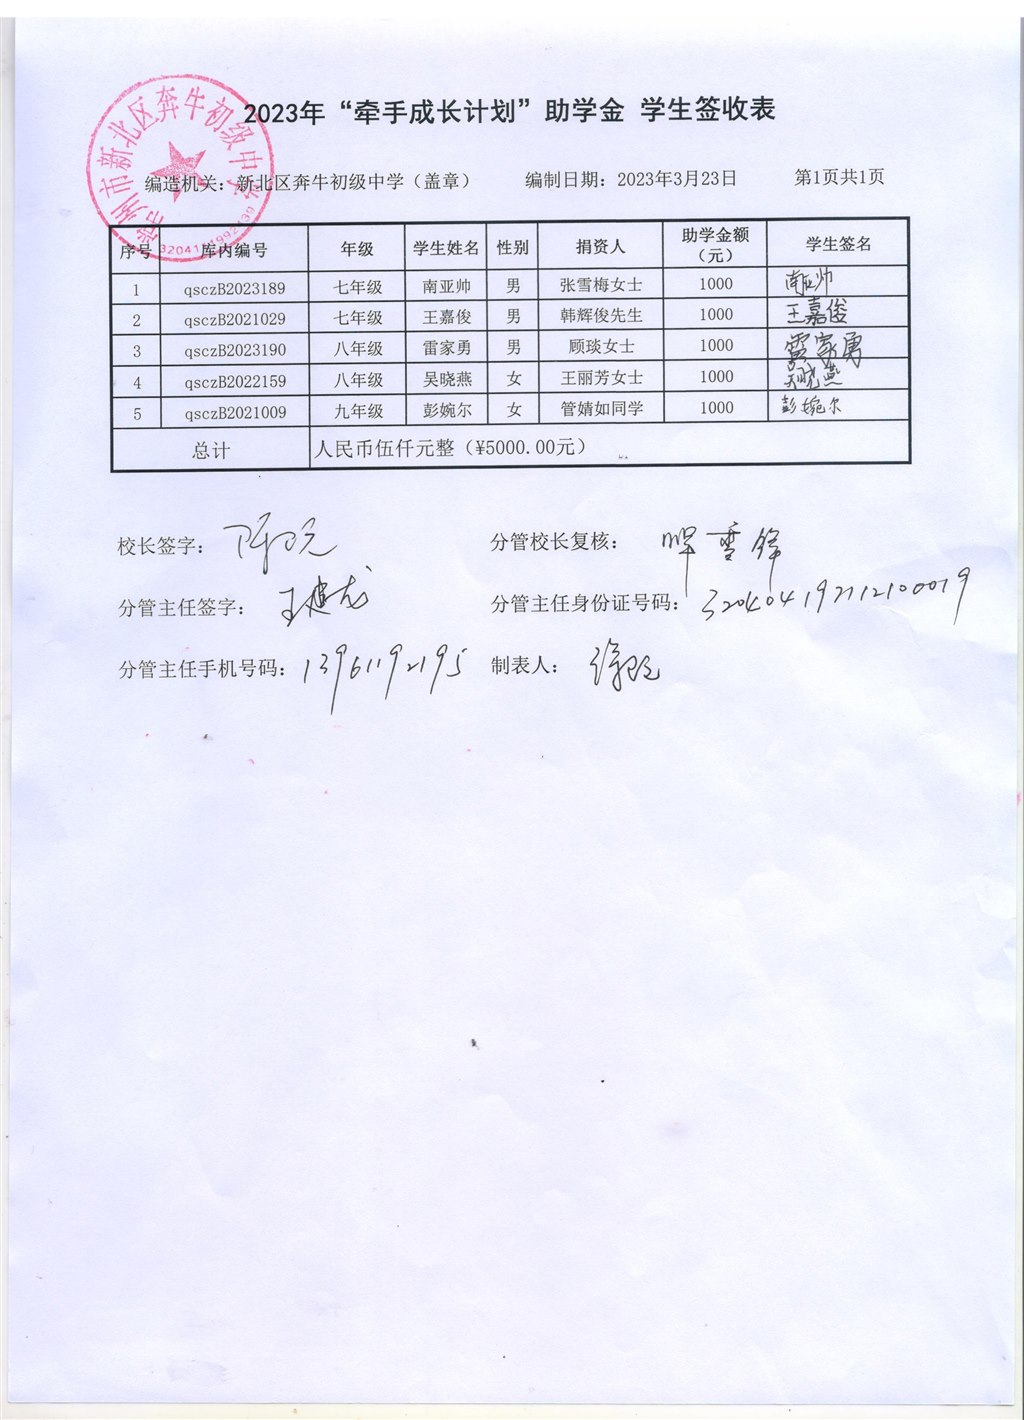 2023年“牵手成长计划”助学金 学生签收表
常州市新北区奔牛初级中学
编造机关：新北区奔牛初级中学（盖章） 编制日期：2023年3月23日 第1页共1页
序号 库内编号 年级 学生姓名 性别 捐资人 助学金额（元） 学生签名
1 qsczB2023189 七年级 南亚帅 男 张雪梅女士 1000 南亚帅
2 qsczB2021029 七年级 王嘉俊 男 韩辉俊先生 1000 王嘉俊
3 qsczB2023190 八年级 雷家勇 男 顾琰女士 1000 雷家勇
4 qsczB2022159 八年级 吴晓燕 女 王丽芳女士 1000 吴晓燕
5 qsczB2021009 九年级 彭婉尔 女 管婧如同学 1000 彭婉尔
总计 人民币伍仟元整（¥5000.00元）
校长签字： 分管校长复核：
分管主任签字： 分管主任身份证号码：320404197112100019
分管主任手机号码：13961192195 制表人：